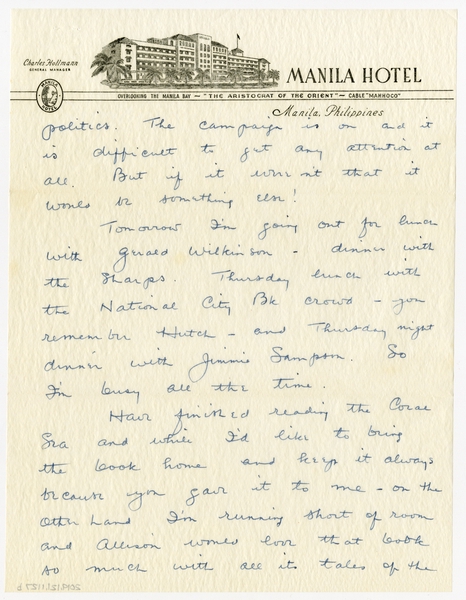 Charles Hollmann
GENERAL MANAGER
MANILA HOTEL
OVERLOOKING THE MANILA BAY — "THE ARISTOCRAT OF THE ORIENT" — CABLE "MANHOCO"
Manila, Philippines
politics. The campaign is on and it
is difficult to get any attention at
all. But if it weren't that it
would be something else!
Tomorrow I'm going out for lunch
with Gerald Wilkinson - dinner with
the Sharps. Thursday lunch with
the National City Bk crowd - you
remember Hutch - and Thursday night
dinner with Jimmie Sampson. So
I'm busy all the time.
Have finished reading the Coral
Sea and while I'd like to bring
the book home and keep it always
because you gave it to me - on the
other hand I'm running short of room
and Allison would love that book
so much with all its tales of the